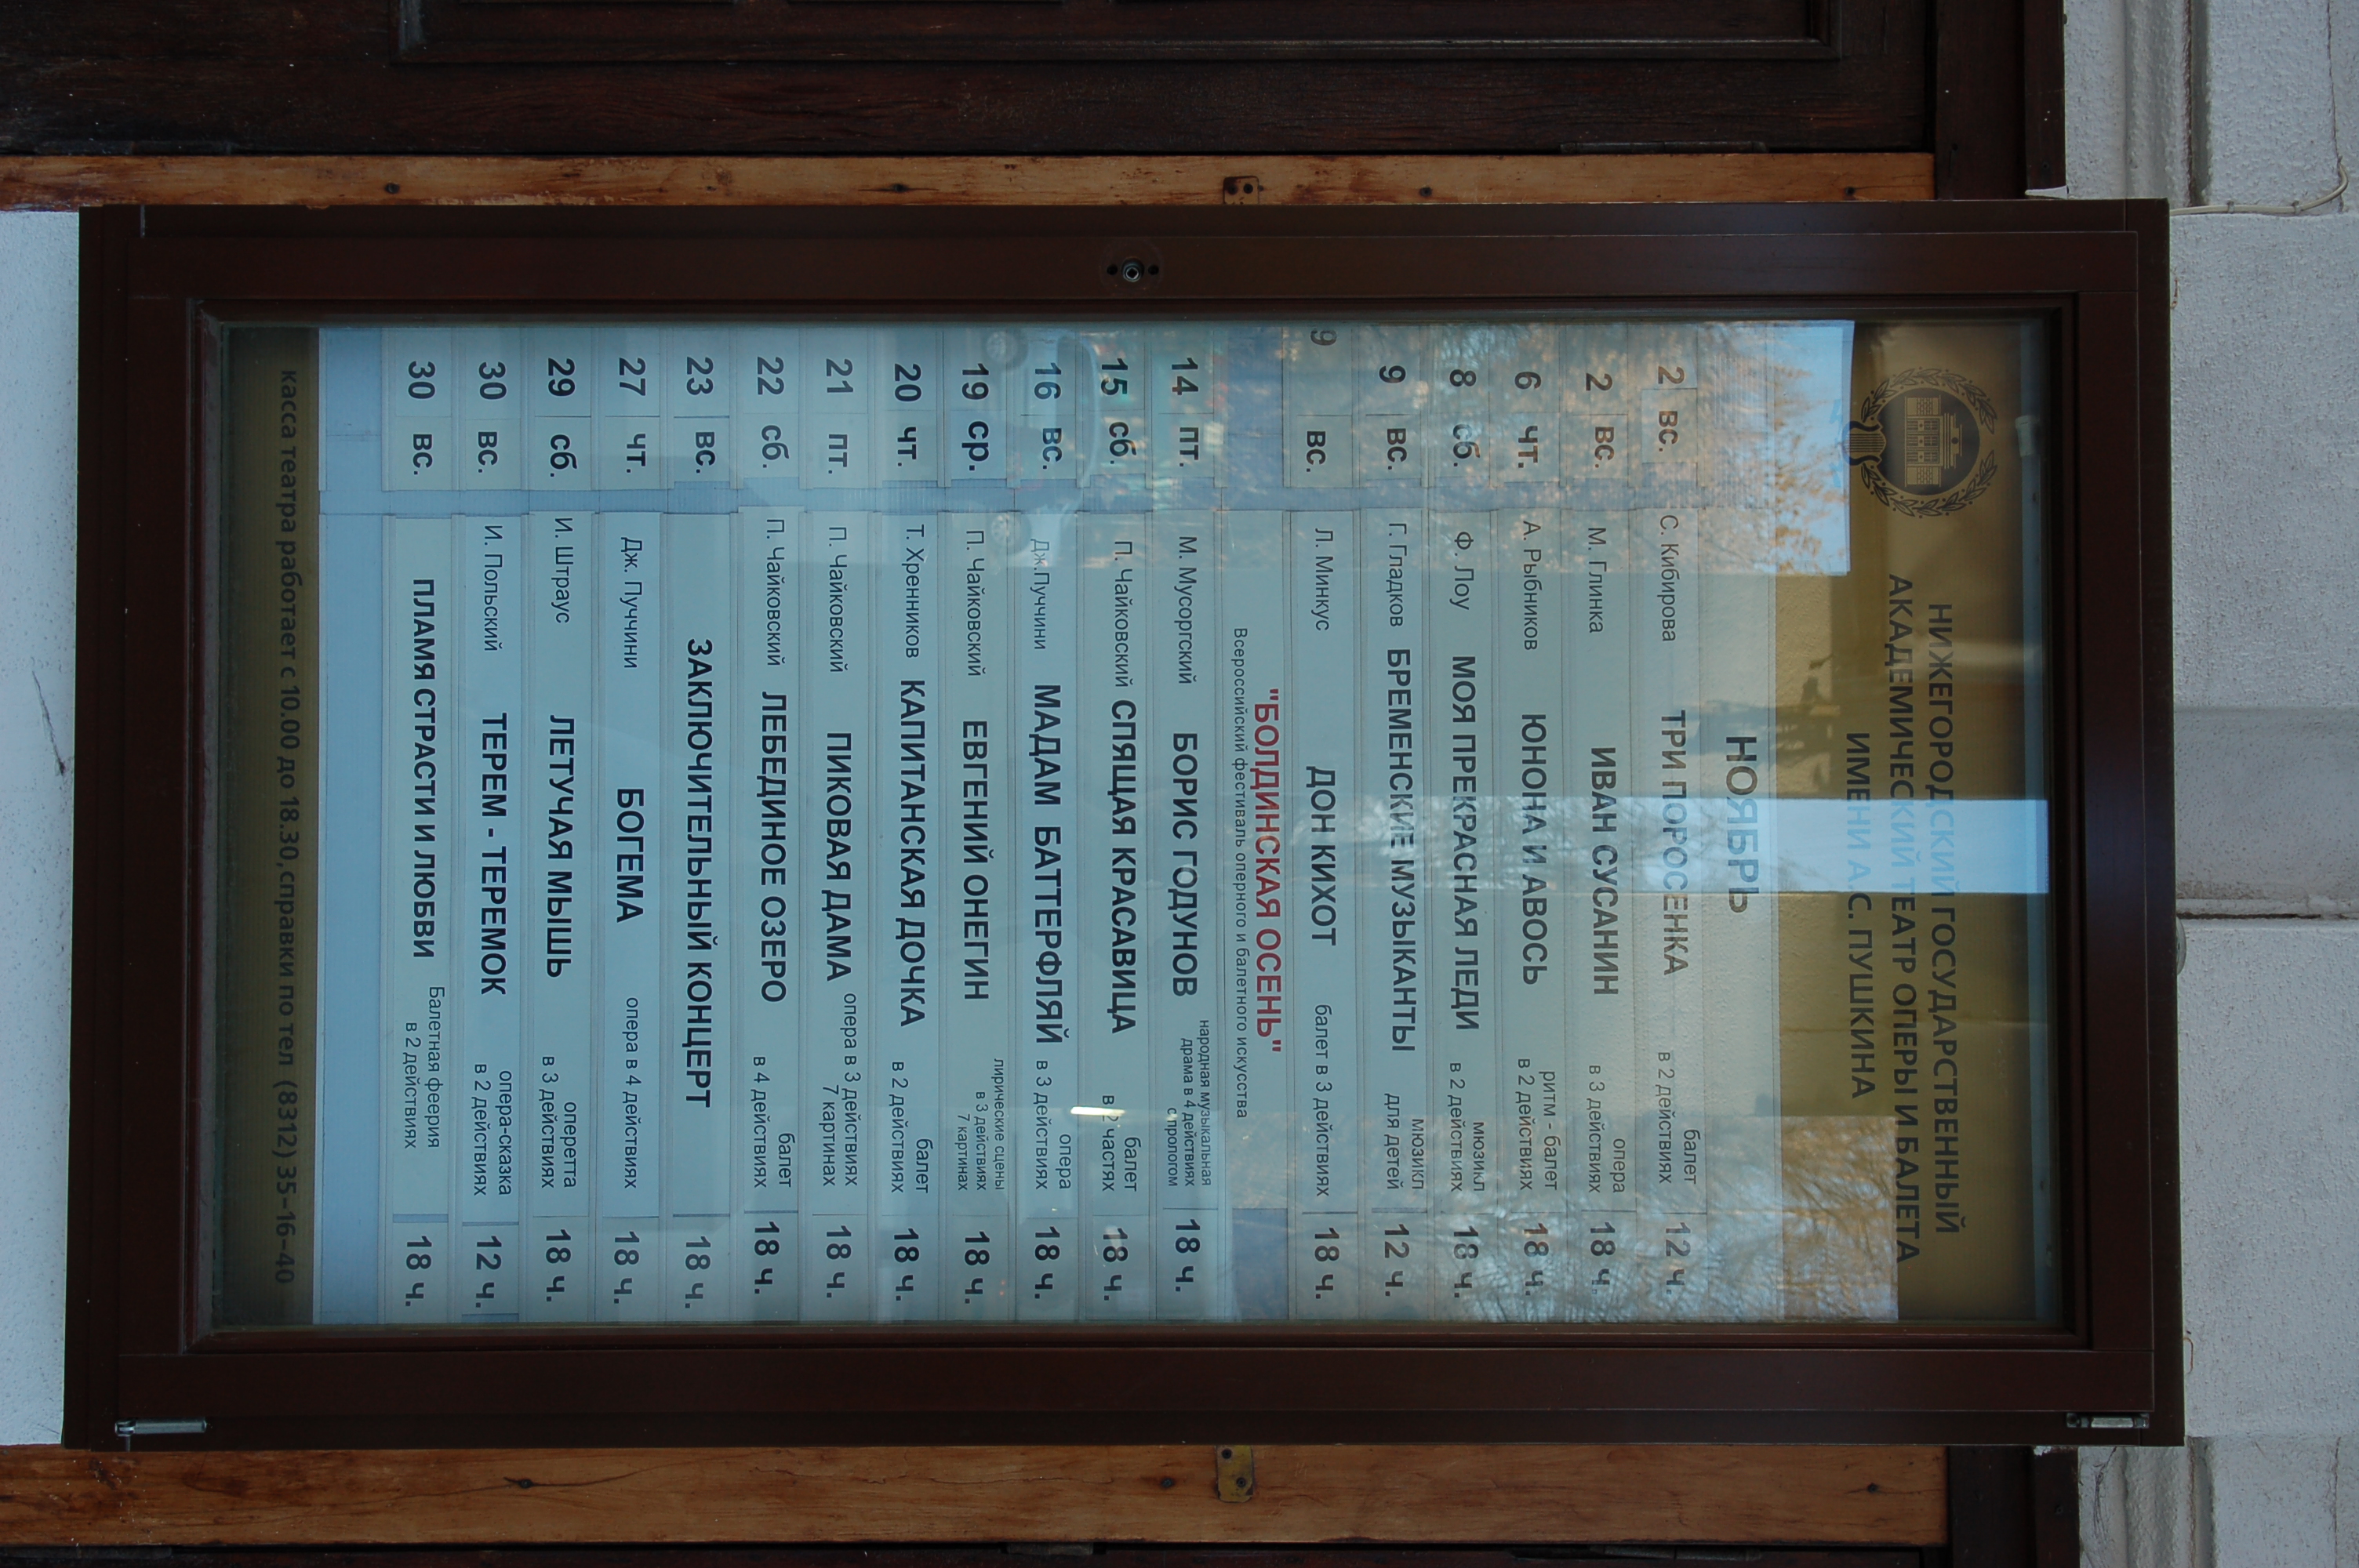 НИЖЕГОРОДСКИЙ ГОСУДАРСТВЕННЫЙ
АКАДЕМИЧЕСКИЙ ТЕАТР ОПЕРЫ И БАЛЕТА
ИМЕНИ А.С. ПУШКИНА
НОЯБРЬ
2 вс. С. Кибирова ТРИ ПОРОСЕНКА балет в 2 действиях 12 ч.
2 вс. М. Глинка ИВАН СУСАНИН опера в 3 действиях 18 ч.
6 чт. А. Рыбников ЮНОНА И АВОСЬ ритм - балет в 2 действиях 18 ч.
8 сб. Ф. Лоу МОЯ ПРЕКРАСНАЯ ЛЕДИ мюзикл в 2 действиях 18 ч.
9 вс. Г. Гладков БРЕМЕНСКИЕ МУЗЫКАНТЫ мюзикл для детей 12 ч.
9 вс. Л. Минкус ДОН КИХОТ балет в 3 действиях 18 ч.
"БОЛДИНСКАЯ ОСЕНЬ"
Всероссийский фестиваль оперного и балетного искусства
14 пт. М. Мусоргский БОРИС ГОДУНОВ народная музыкальная драма в 4 действиях с прологом 18 ч.
15 сб. П. Чайковский СПЯЩАЯ КРАСАВИЦА балет в 2 частях 18 ч.
16 вс. Дж.Пуччини МАДАМ БАТТЕРФЛЯЙ опера в 3 действиях 18 ч.
19 ср. П. Чайковский ЕВГЕНИЙ ОНЕГИН лирические сцены в 3 действиях 7 картинах 18 ч.
20 чт. Т. Хренников КАПИТАНСКАЯ ДОЧКА балет в 2 действиях 18 ч.
21 пт. П. Чайковский ПИКОВАЯ ДАМА опера в 3 действиях 7 картинах 18 ч.
22 сб. П. Чайковский ЛЕБЕДИНОЕ ОЗЕРО балет в 4 действиях 18 ч.
23 вс. ЗАКЛЮЧИТЕЛЬНЫЙ КОНЦЕРТ 18 ч.
27 чт. Дж. Пуччини БОГЕМА опера в 4 действиях 18 ч.
29 сб. И. Штраус ЛЕТУЧАЯ МЫШЬ оперетта в 3 действиях 18 ч.
30 вс. И. Польский ТЕРЕМ - ТЕРЕМОК опера-сказка в 2 действиях 12 ч.
30 вс. ПЛАМЯ СТРАСТИ И ЛЮБВИ Балетная феерия в 2 действиях 18 ч.
касса театра работает с 10.00 до 18.30, справки по тел (8312) 35-16-40